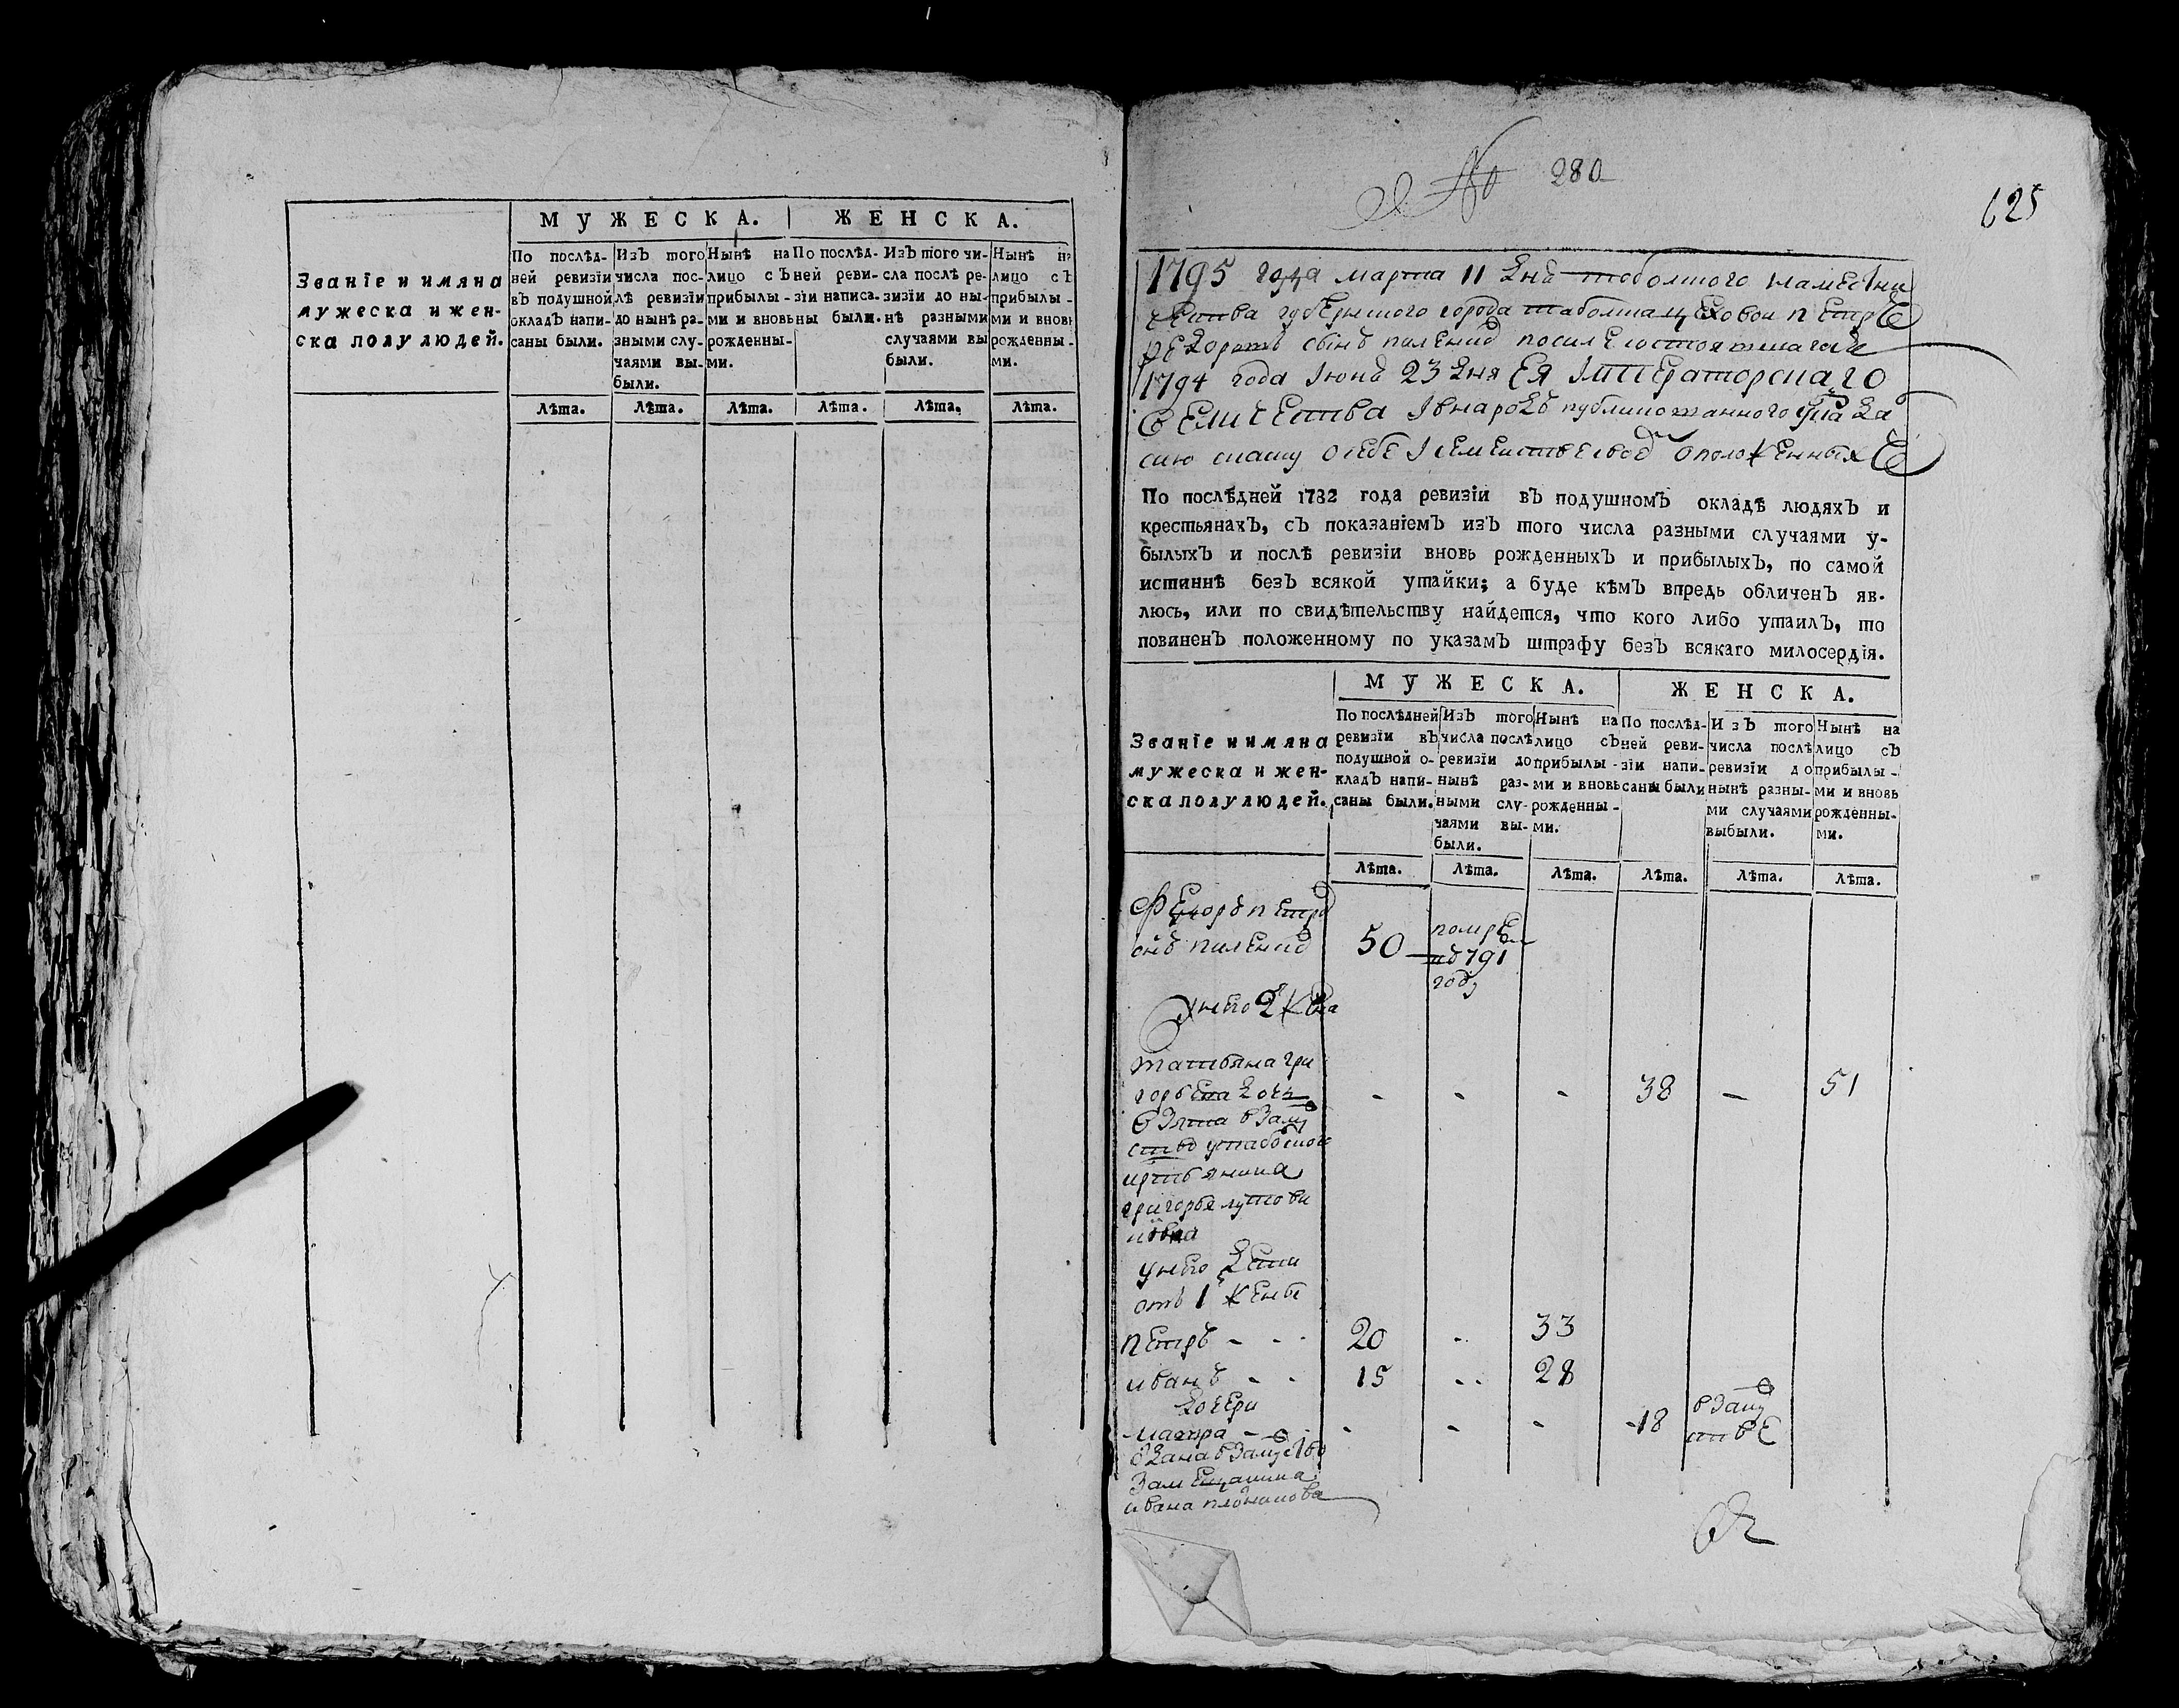 МУЖЕСКА. ЖЕНСКА.
Званіе и имяна мужеска и женска полу людей.
По послѣд-
ней ревизіи
въ подушной
окладъ напи-
саны были.
Изъ того
числа пос-
лѣ ревизіи
до нынѣ ра-
зными слу-
чаями вы-
были.
Нынѣ на
лицо съ
прибылы-
ми и вновь
рожденны-
ми.
По послѣд-
ней реви-
зіи написа-
ны были.
Изъ того чи-
сла послѣ ре-
визіи до ны-
нѣ разными
случаями вы
были.
Нынѣ на
лицо съ
прибылы-
ми и вновь
рожденны-
ми.
Лѣта. Лѣта. Лѣта. Лѣта. Лѣта. Лѣта.
№ 280
625
1795 года марта 11 дня тоболского намесни
чества губернского города таболска цеховои петръ
федоровъ сынъ посилѣ состоявшагося
1794 года Июня 23 дня Ея Императорскаго
Величества Ивнародъ публикованного указа да
сию скаску осебѣ Исемействе своемъ оположенныхъ
По послѣдней 1782 года ревизіи въ подушномъ окладѣ людяхъ и
крестьянахъ, съ показаніемъ изъ того числа разными случаями у-
былыхъ и послѣ ревизіи вновь рожденныхъ и прибылыхъ, по самой
истиннѣ безъ всякой утайки; а буде кѣмъ впредь обличенъ яв-
люсь, или по свидѣтельству найдется, что кого либо утаилъ, то
повиненъ положенному по указамъ штрафу безъ всякаго милосердія.
МУЖЕСКА. ЖЕНСКА.
Званіе и имяна
мужеска и жен-
ска полу людей.
По послѣдней
ревизіи въ
подушной о-
кладъ напи-
саны были.
Изъ того
числа послѣ
ревизіи до
нынѣ раз-
ными слу-
чаями вы-
были.
Нынѣ на
лицо съ
прибылы-
ми и вновь
рожденны-
ми.
По послѣд-
ней реви-
зіи напи-
саны были
Изъ того
числа послѣ
ревизіи до
нынѣ разны-
ми случаями
выбыли.
Нынѣ на
лицо съ
прибылы-
ми и вновь
рожденны-
ми.
Лѣта. Лѣта. Лѣта. Лѣта. Лѣта. Лѣта.
Федоръ петро
въ сынъ 50 помре
въ 791
году
унего 2 жена
татьяна гри
горьева дочь - - - 38 - 51
взята взаму
ство
григорья
унего дети
от 1 жены
петръ - - - 20 - 33
иванъ - - 15 - - 28
дочери
- - - - 18 взаму
стве
одана взамуство
замещанина
ивана